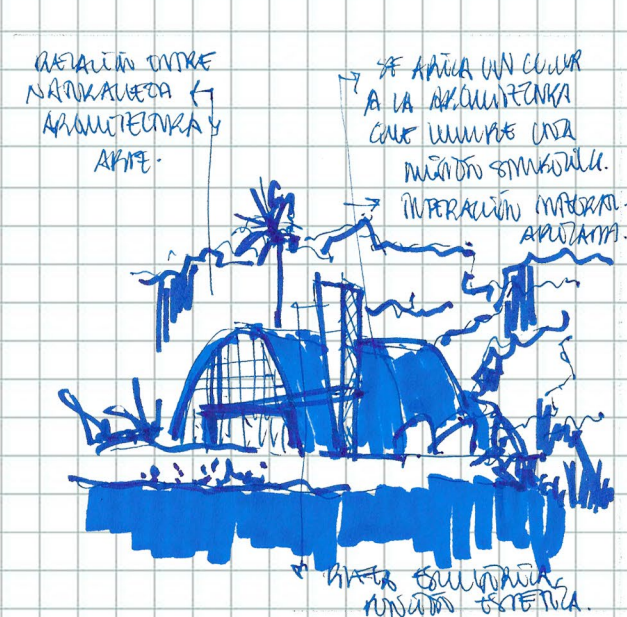 RELACIÓN ENTRE
NATURALEZA
ARQUITECTURA Y
ARTE.
SE APLICA UN COLOR
A LA ARQUITECTURA
QUE CUMPLE UNA
FUNCIÓN SIMBÓLICA.
INTEGRAL
PIEZA ESCULTÓRICA,
FUNCIÓN ESTÉTICA.